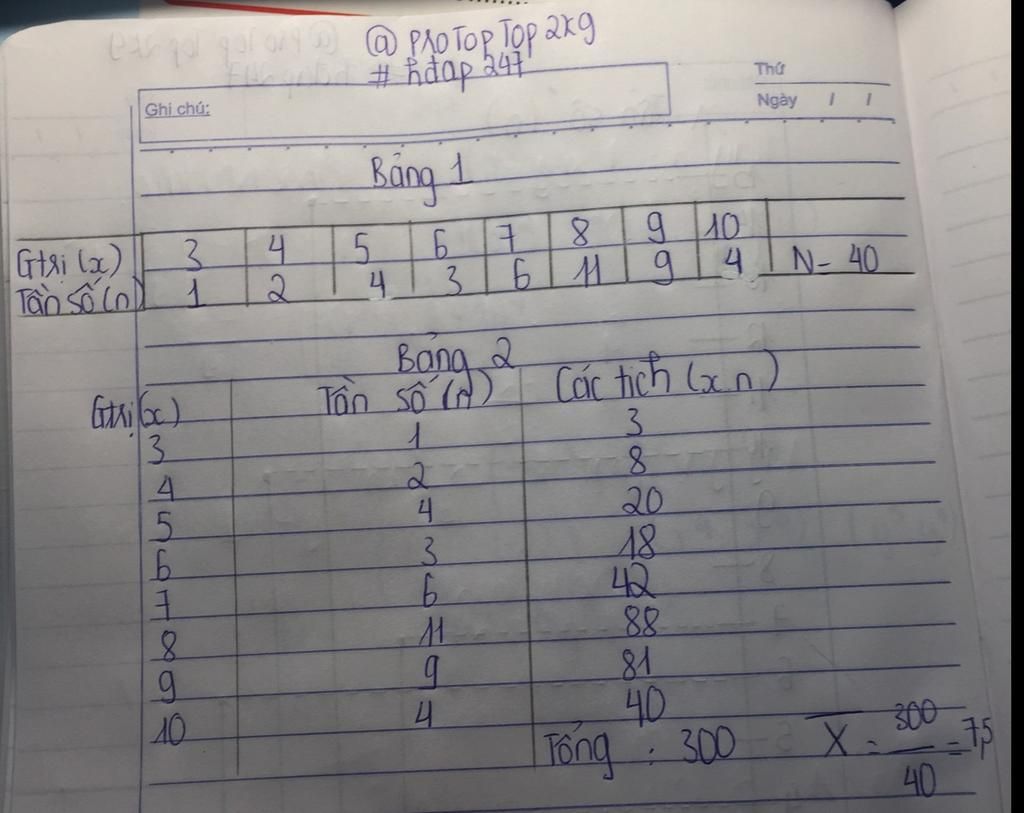 @ PROTOPTOP2K9
# hđap 247
Thứ
Ghi chú:
Ngày / /
Bảng 1
Gtrị (x) 3 4 5 6 7 8 9 10
Tần số (n) 1 2 4 3 6 11 9 4 N= 40
Bảng 2
Gtrị (x) Tần số (n) Các tích (x n)
3 1 3
4 2 8
5 4 20
6 3 18
7 6 42
8 11 88
9 9 81
10 4 40
Tổng : 300 X = 300/40 = 7,5